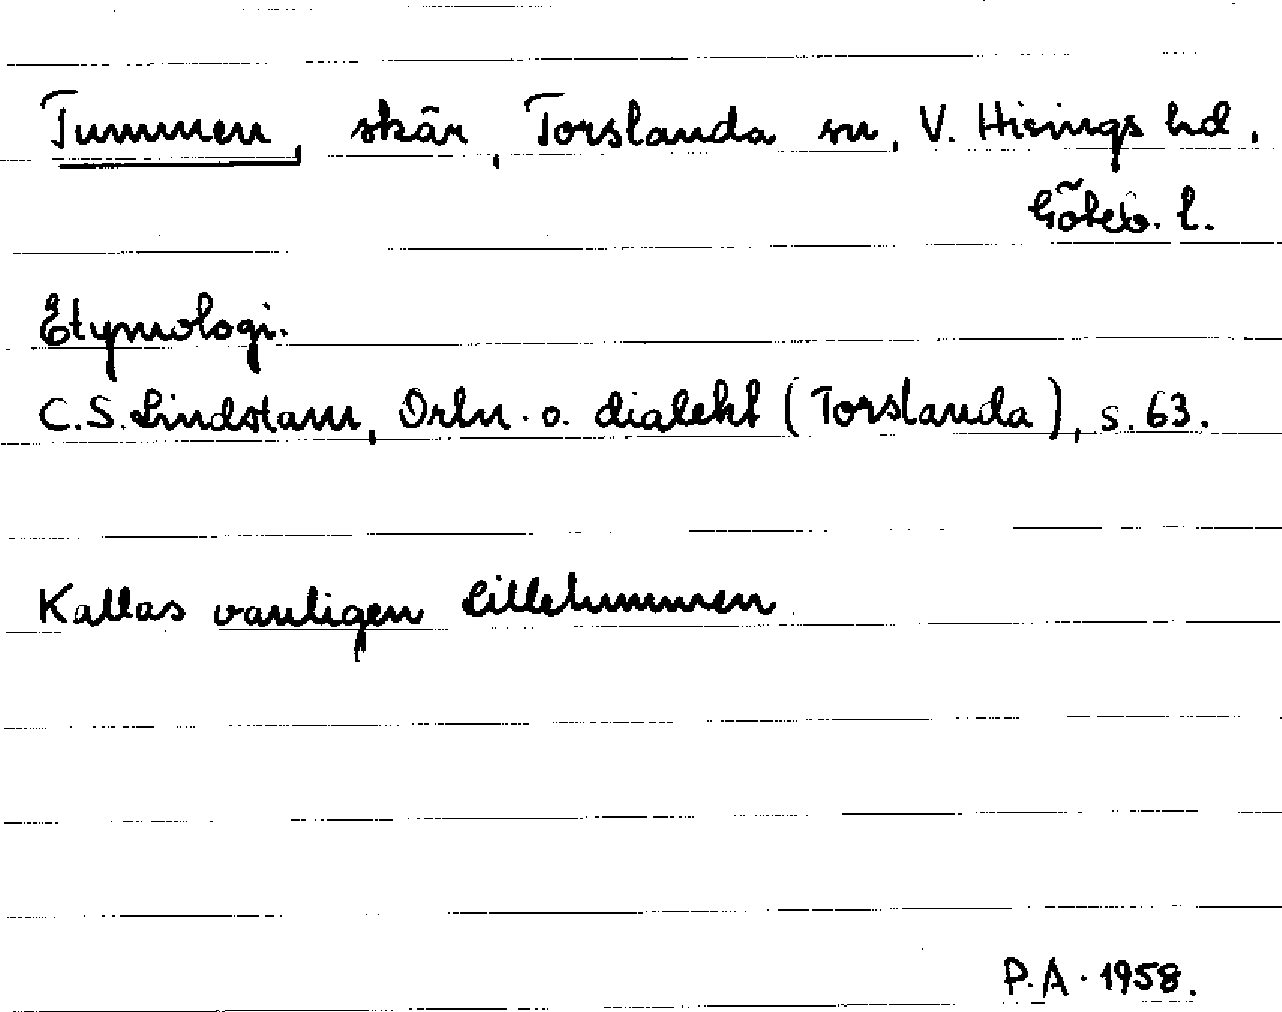 Tummen, skär, Torslanda sn, V. Hisings hd,
Göteb. l.
Etymologi.
C.S. Lindstam, Ortn. o. dialekt (Torslanda), s. 63.
Kallas vanligen Lilletummen.
P.A. 1958.